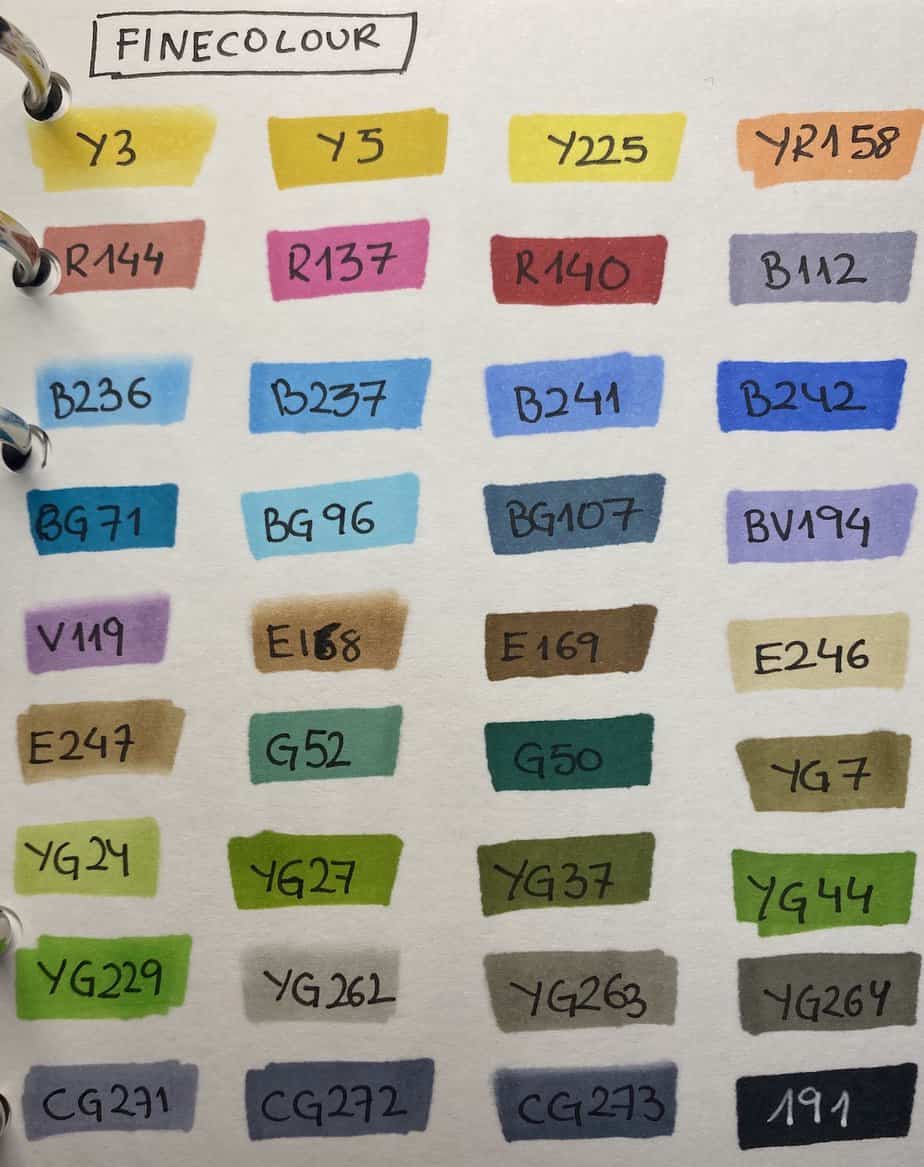 FINECOLOUR
Y3 Y5 Y225 YR158
R144 R137 R140 B112
B236 B237 B241 B242
BG71 BG96 BG107 BV194
V119 E168 E169 E246
E247 G52 G50 YG7
YG24 YG27 YG37 YG44
YG229 YG262 YG263 YG264
CG271 CG272 CG273 191